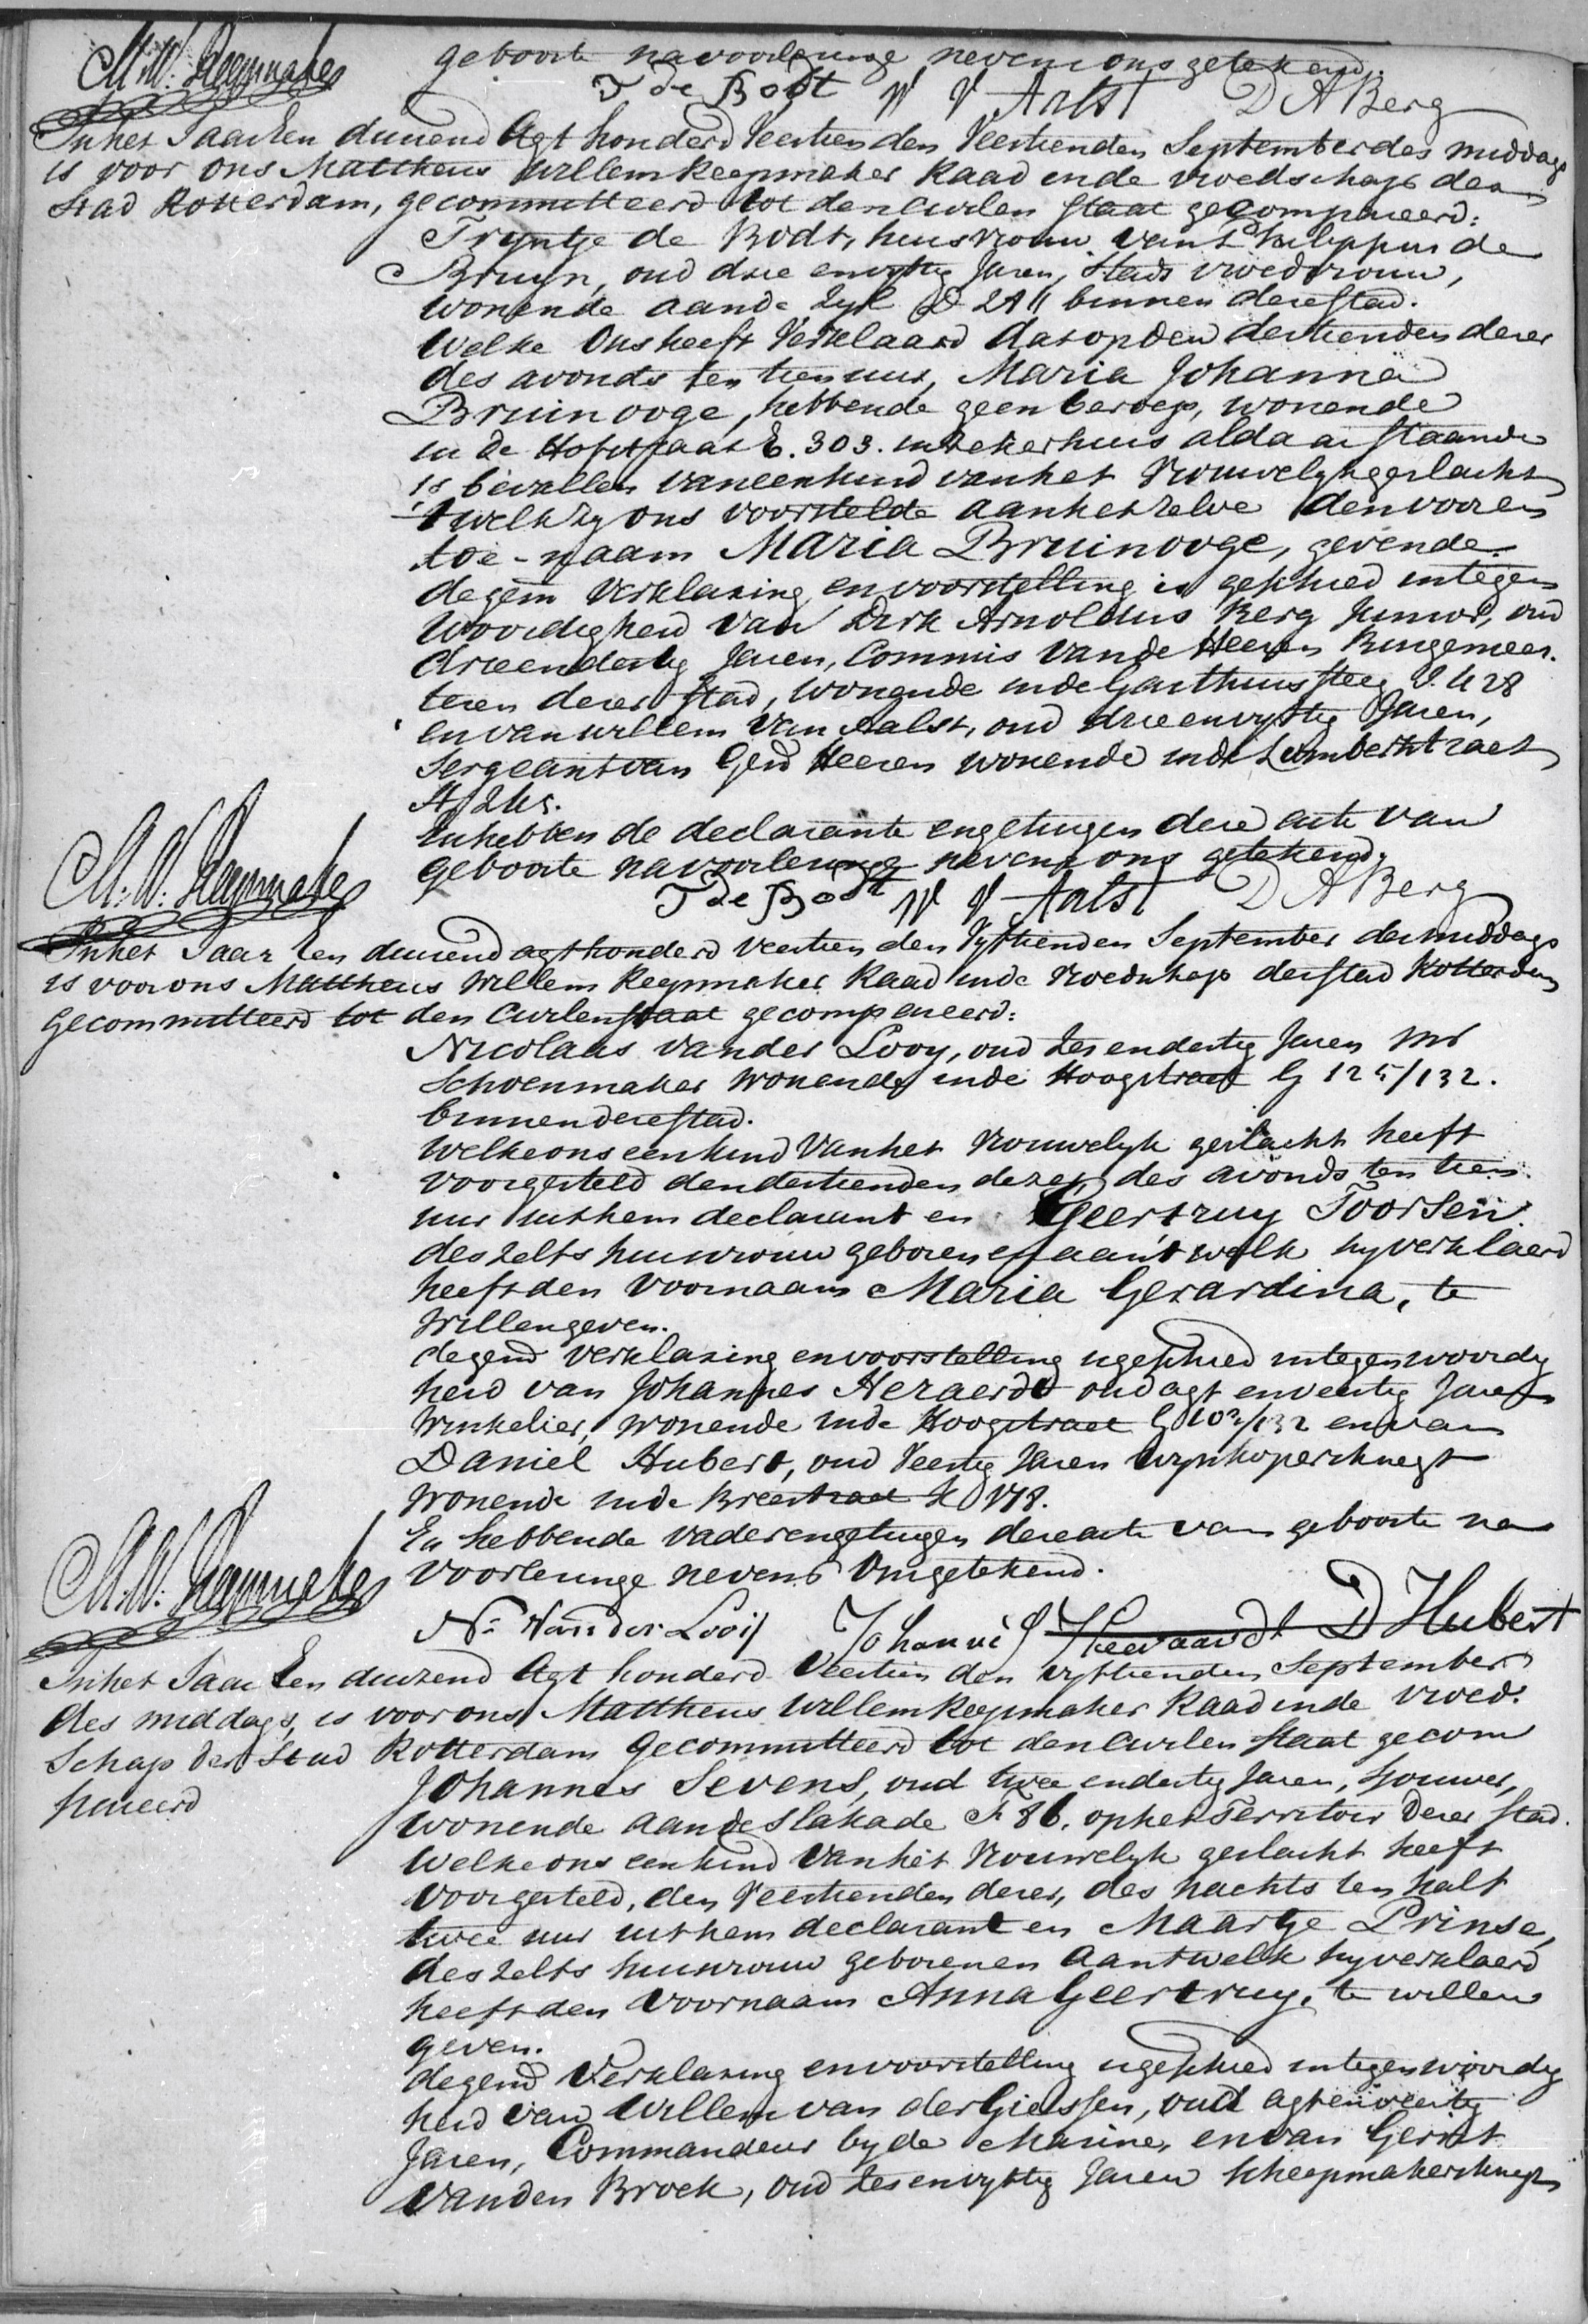 M.W. Reepmaker
geboorte na voorlezinge nevens ons getekend.
T de Bodt W V Aalst D A Berg
In het Jaar Een duizend Agt honderd Veertien den Veertienden September des middags
is voor ons Mattheus Willem Reepmaker Raad in de Vroedschap der
Stad Rotterdam, gecommitteerd tot den Civilen Staat gecompareerd:
Tryntje de Bodt, huisvrouw van Philippus de
Bruyn, oud drie en vyftig Jaren, Stads vroedvrouw,
wonende aan de Zyl D 211 binnen deze Stad.
Welke Ons heeft Verklaard dat op den dertienden dezer
des avonds ten tien uur, Maria Johanna
Bruinooge, hebbende geen beroep, wonende
in de Hofstraat E. 303. in zeker huis aldaar staande
is bevallen van een kind van het Vrouwelyk geslacht
't welk zy ons voorstelde aan het zelve den voor en
toe-naam Maria Bruinooge, gevende.
de gem Verklaring en voorstelling is geschied in tegen
woordigheid van Dirk Arnoldus Berg Junior, oud
drie en dertig Jaren, Commis van de Heeren Burgemees
teren dezer Stad, wonende in de steeg 428
en van Willem van Aalst, oud drie en vyftig Jaren,
Sergeant van Gem Heeren wonende in de Lombertstraat

En hebben de declarante en getuigen deze acte van
M.W. Reepmaker
geboorte na voorlezinge nevens ons getekend.
T de Bodt W V Aalst D A Berg
In het Jaar Een duizend agt honderd Veertien den Vyftienden September des middags
is voor ons Mattheus Willem Reepmaker Raad in de Vroedschap der Stad Rotterdam
gecommitteerd tot den Civilen Staat gecompareerd:
Nicolaas van der Looy, oud zes en dertig Jaren Mr
Schoenmaker wonende in de Hoogstraat G 125/132.
binnen deze Stad.
Welke ons een kind van het Vrouwelyk geslacht heeft
voorgesteld den dertienden dezer, des avonds ten tien
uur uit hem declarant en Geertruy Toorsen
deszelfs huisvrouw geboren en aan 't welk hy verklaard
heeft den Voornaam Maria Gerardina, te
willen geven.
de gem Verklaring en voorstelling is geschied in tegenwoordig
heid van Johannes Heraerdt oud agt en veertig Jaren
Winkelier, wonende in de Hoogstraat G 102/132 en van
Daniel Hubert, oud Veertig Jaren wynkopersknegt
wonende in de Breestraat 178.
En hebben de vader en getuigen deze acte van geboorte na
M.W. Reepmaker
voorlezinge nevens Ons getekend.
Ns Van der Looij Johannes Heeraardt D Hubert
In het Jaar Een duizend Agt honderd Veertien den vyftienden September
des middags, is voor ons Mattheus Willem Reepmaker Raad in de Vroed:
Schap der Stad Rotterdam gecommitteerd tot den Civilen Staat gecom
pareerd
Johannes Sevens, oud twee en dertig Jaren, Sjouwer,
wonende aan de Slakade F 86. op het Territoir dezer Stad.
Welke ons een kind van het Vrouwelyk geslacht heeft
voorgesteld, den Veertienden dezer, des nachts ten half
twee uur uit hem declarant en Maartje Prinse,
deszelfs huisvrouw geboren en aan 't welk hy verklaard
heeft den Voornaam Anna Geertruy, te willen
geven.
de gem Verklaring en voorstelling is geschied in tegenwoordig
heid van Willem van der Giessen, oud agt en veertig
Jaren, Commandeur by de Marine, en van Gerrit
van den Broek, oud zes en vyftig Jaren Scheepmakersknegt